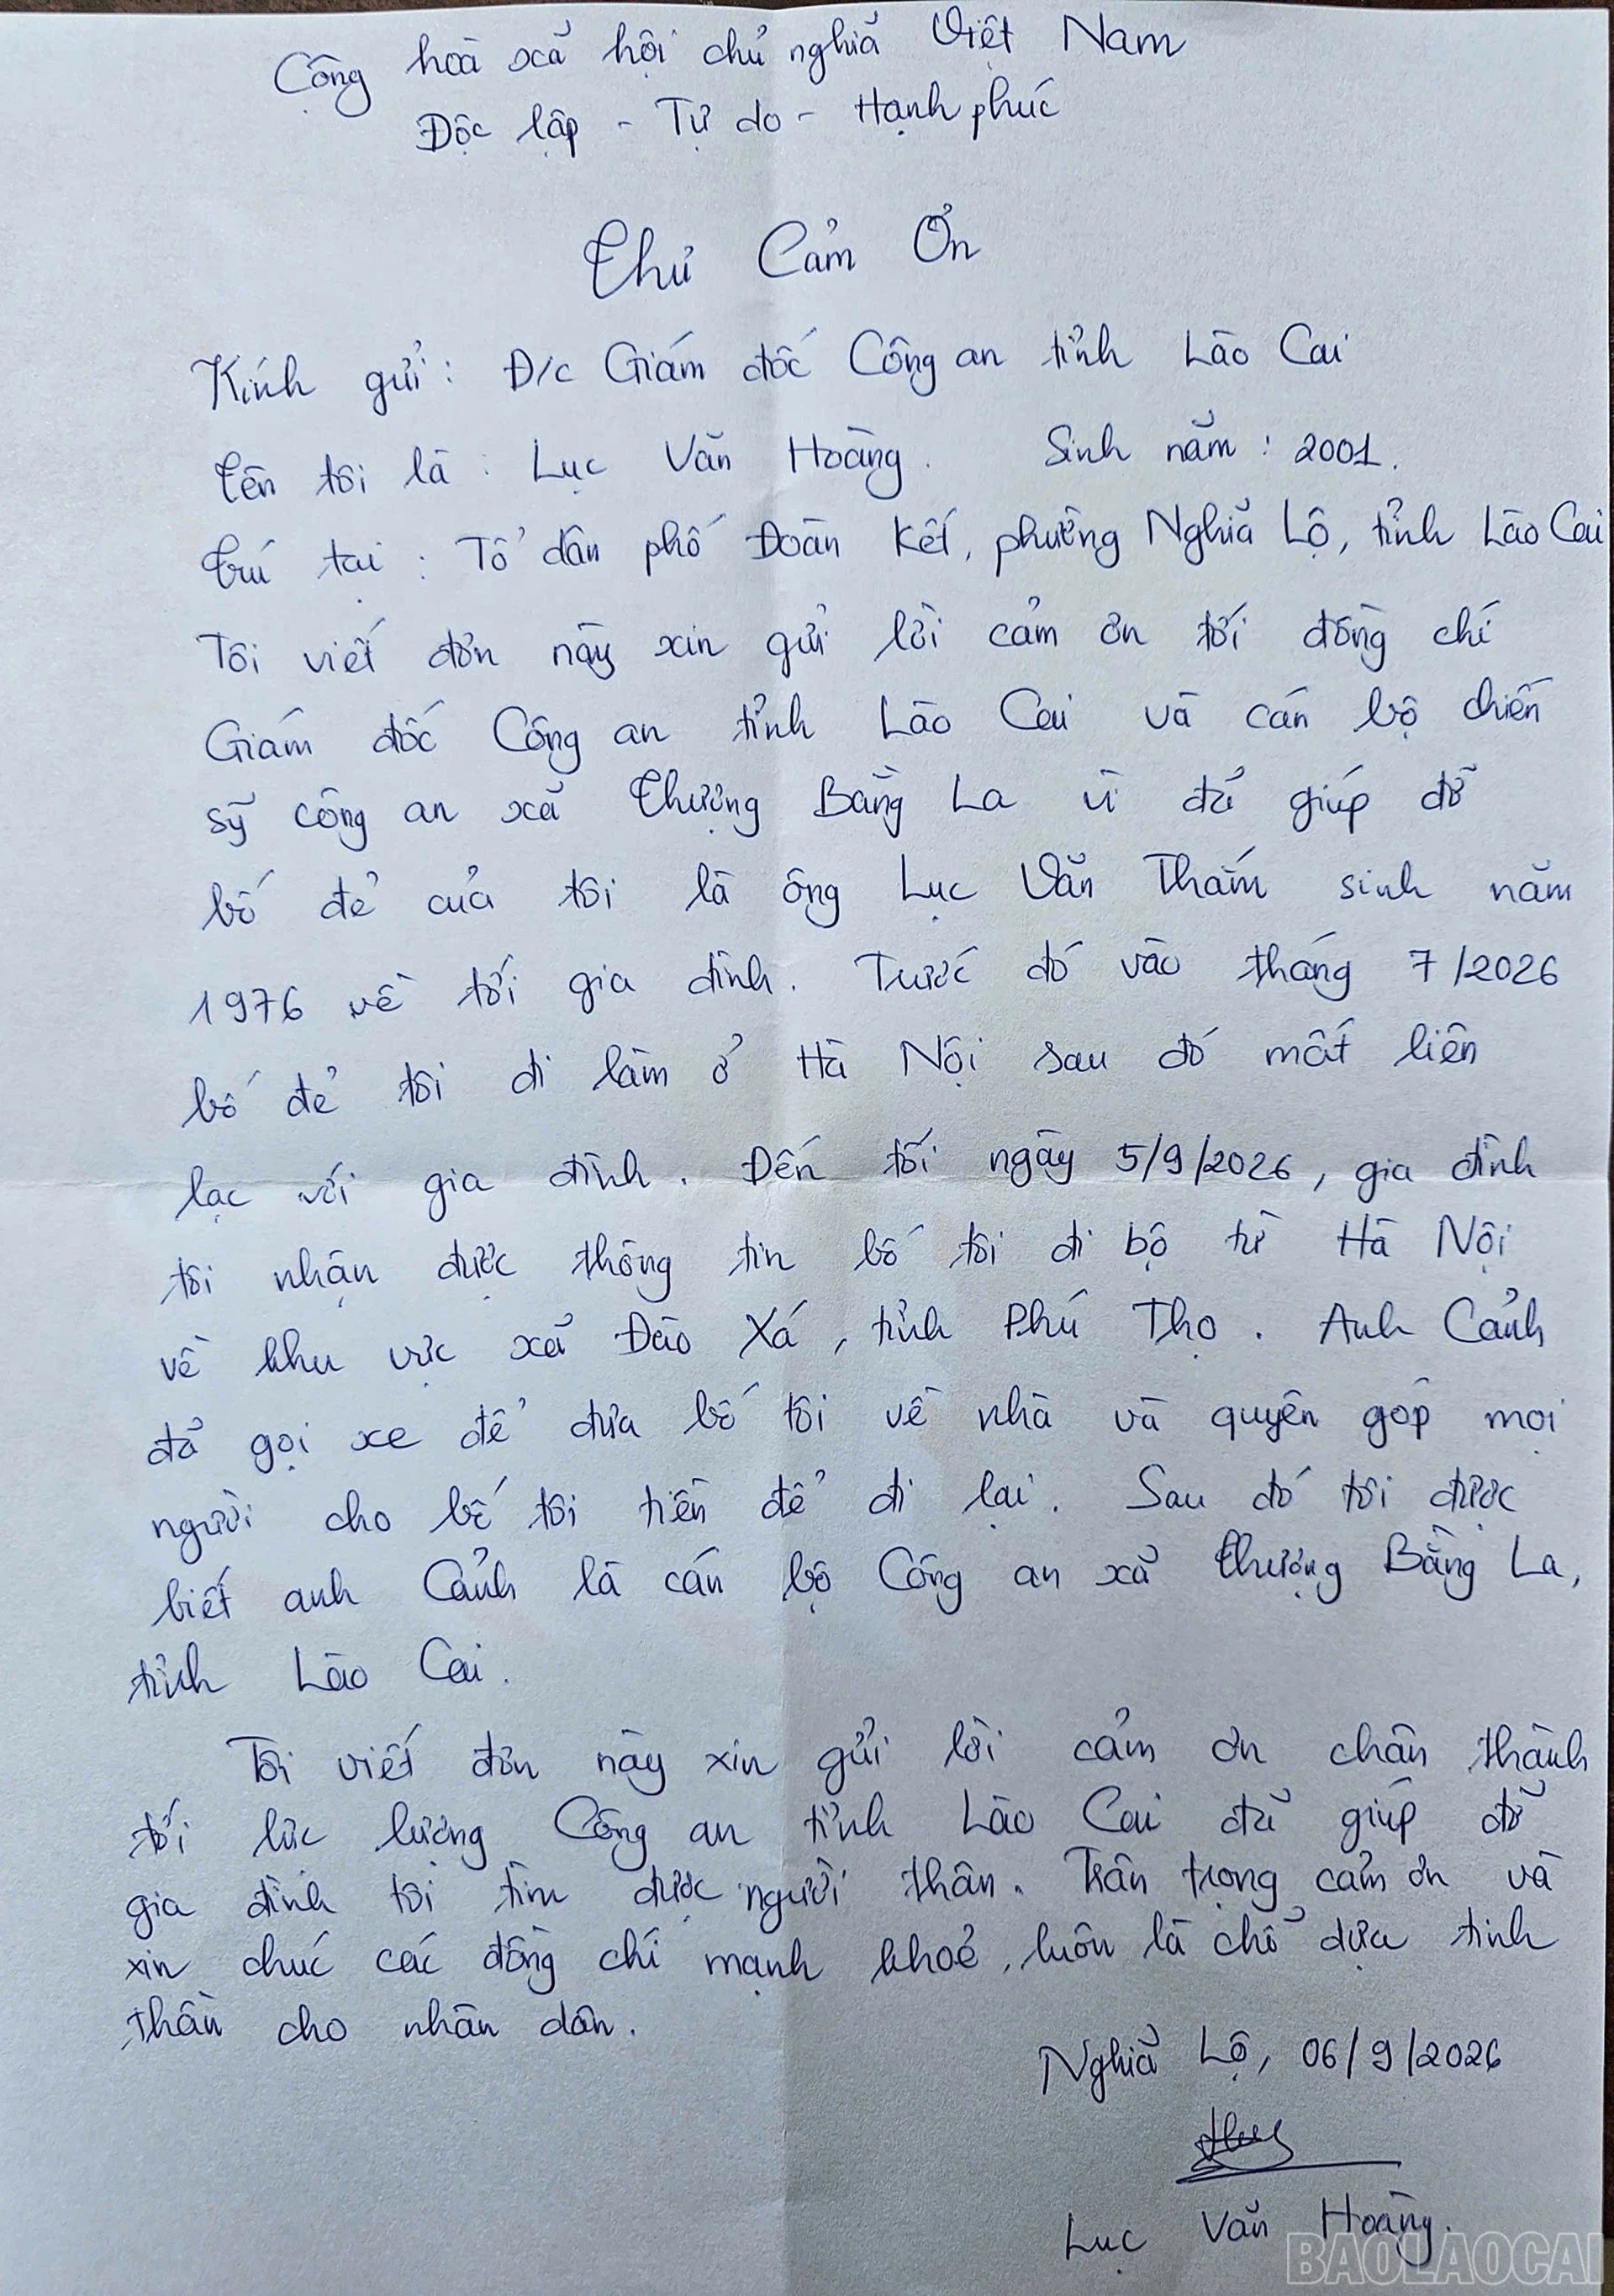 Cộng hoà xã hội chủ nghĩa Việt Nam
Độc lập - Tự do - Hạnh phúc
Thư Cảm Ơn
Kính gửi: Đ/c Giám đốc Công an tỉnh Lào Cai
Tên tôi là: Lục Văn Hoàng. Sinh năm: 2001.
Trú tại: Tổ dân phố Đoàn Kết, phường Nghĩa Lộ, tỉnh Lào Cai
Tôi viết đơn này xin gửi lời cảm ơn tới đồng chí
Giám đốc Công an tỉnh Lào Cai và cán bộ chiến
sỹ công an xã Thượng Bằng La vì đã giúp đỡ
bố đẻ của tôi là ông Lục Văn Thắm sinh năm
1976 về tới gia đình. Trước đó vào tháng 7/2026
bố đẻ tôi đi làm ở Hà Nội sau đó mất liên
lạc với gia đình. Đến tối ngày 5/9/2026, gia đình
tôi nhận được thông tin bố tôi đi bộ từ Hà Nội
về khu vực xã Đào Xá, tỉnh Phú Thọ. Anh Cảnh
đã gọi xe để đưa bố tôi về nhà và quyên góp mọi
người cho bố tôi tiền để đi lại. Sau đó tôi được
biết anh Cảnh là cán bộ Công an xã Thượng Bằng La,
tỉnh Lào Cai.
Tôi viết đơn này xin gửi lời cảm ơn chân thành
tới lực lượng Công an tỉnh Lào Cai đã giúp đỡ
gia đình tôi tìm được người thân. Trân trọng cảm ơn và
xin chúc các đồng chí mạnh khoẻ, luôn là chỗ dựa tinh
thần cho nhân dân.
Nghĩa Lộ, 06/9/2026
Lục Văn Hoàng.
BAOLAOCAI